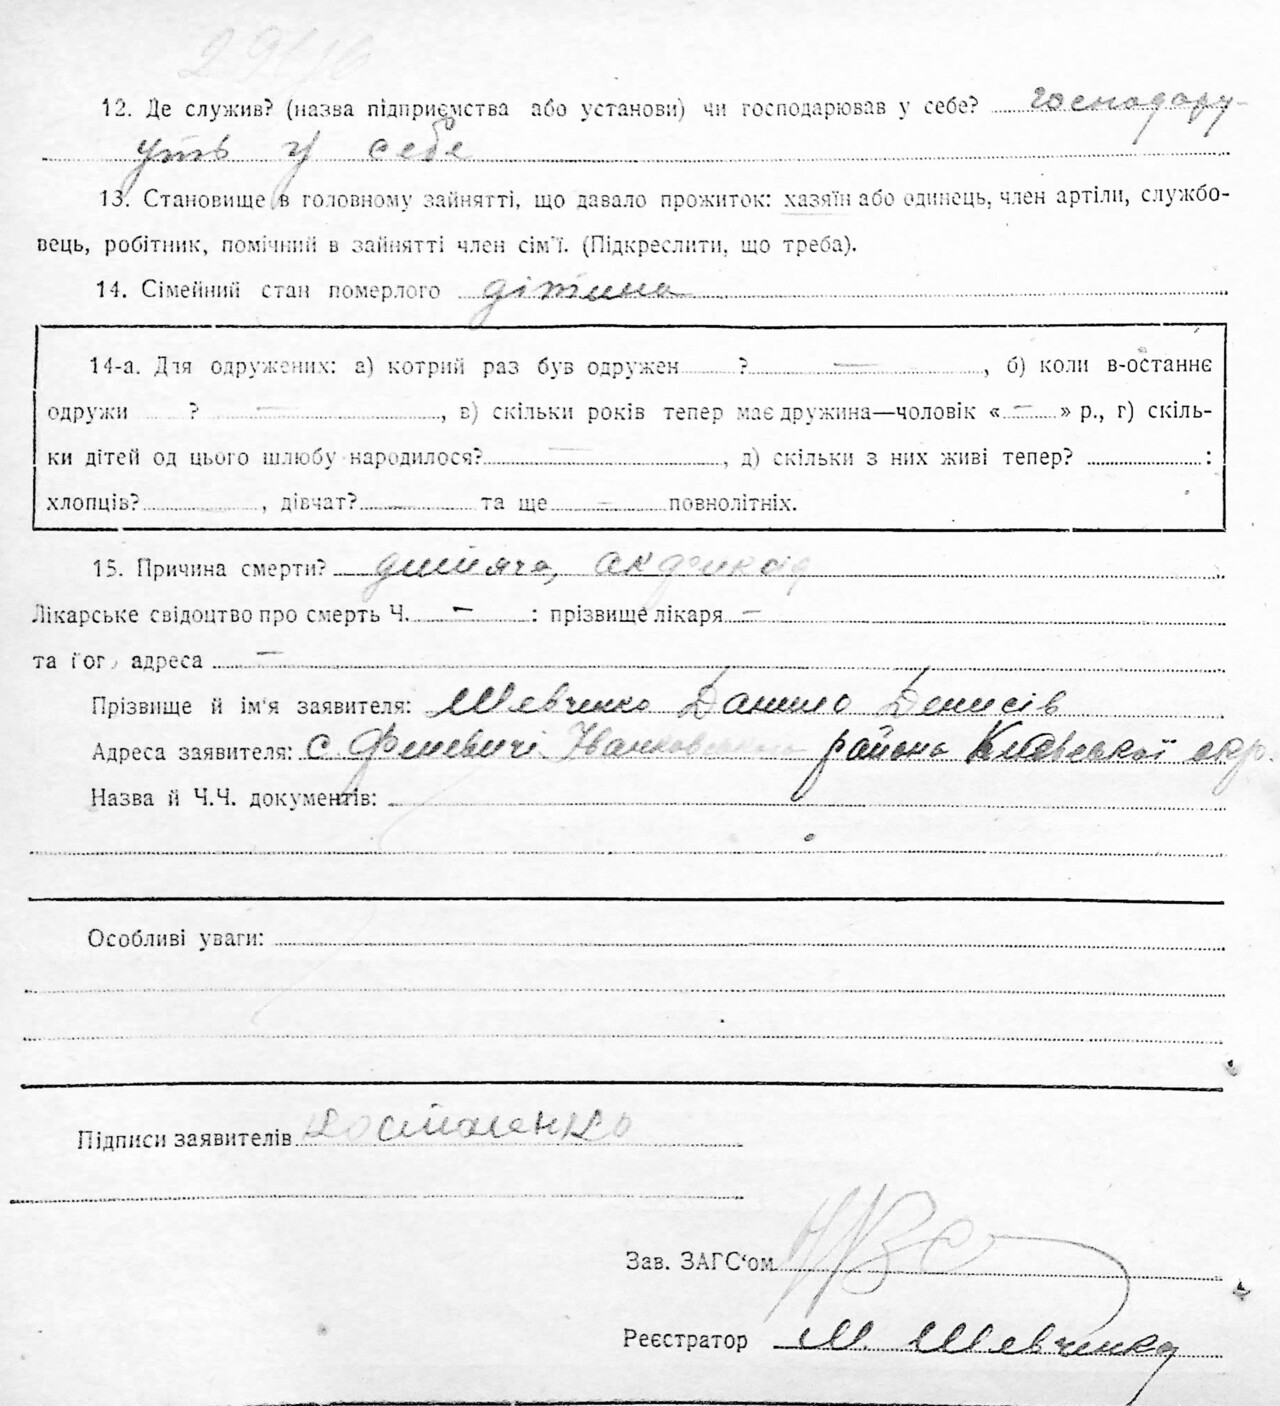 12. Де служив? (назва підприємства або установи) чи господарював у себе? господару-
ють у себе
13. Становище в головному зайнятті, що давало прожиток: хазяїн або одинець, член артіли, службо-
вець, робітник, помічний в зайнятті член сім'ї. (Підкреслити, що треба).
14. Сімейний стан померлого дітина
14-а. Для одружених: а) котрий раз був одружен ? —, б) коли в-останнє
одружи ? —, в) скільки років тепер має дружина—чоловік « — » р., г) скіль-
ки дітей од цього шлюбу народилося? —, д) скільки з них живі тепер? :
хлопців? , дівчат? — та ще — повнолітніх.
15. Причина смерти? дитяча,
Лікарське свідоцтво про смерть Ч. — : прізвище лікаря —
та його адреса —
Прізвище й ім'я заявителя: Шевченко Данило Денисів
Адреса заявителя: с. Феневичі Іванковського района Київської окр.
Назва й Ч.Ч. документів:
Особливі уваги:
Підписи заявителів
Зав. ЗАГС'ом
Реєстратор М. Шевченко